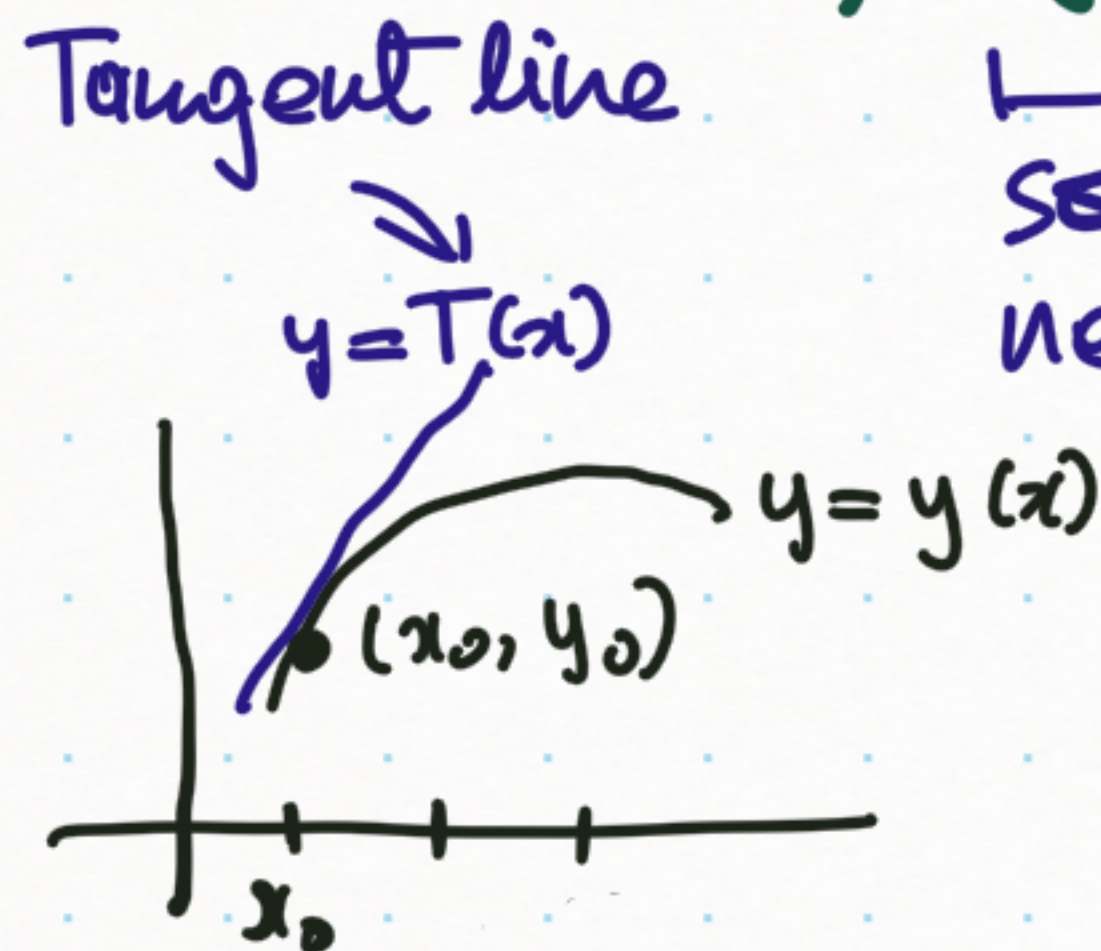 Tangent line
y=T(x)
y = y (x)
(x₀, y₀)
x₀